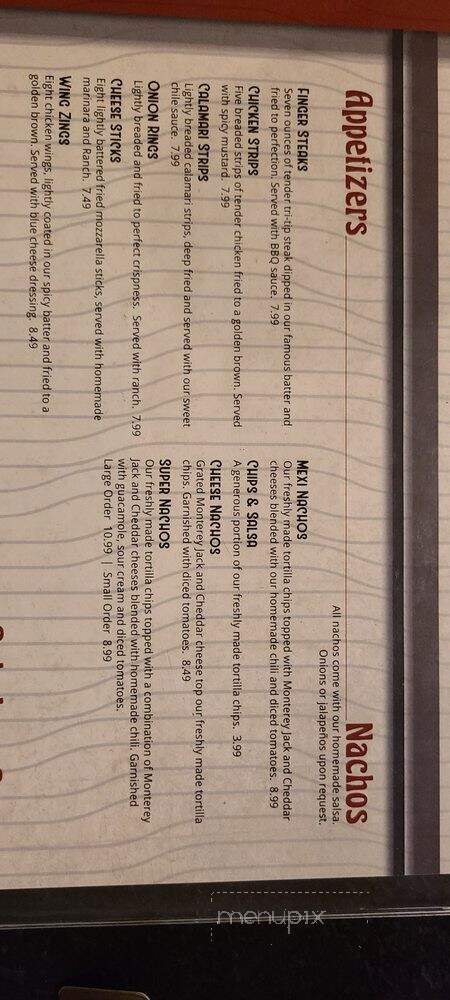 Appetizers
FINGER STEAKS
Seven ounces of tender tri-tip steak dipped in our famous batter and
fried to perfection. Served with BBQ sauce. 7.99
CHICKEN STRIPS
Five breaded strips of tender chicken fried to a golden brown. Served
with spicy mustard. 7.99
CALAMARI STRIPS
Lightly breaded calamari strips, deep fried and served with our sweet
chile sauce. 7.99
ONION RINGS
Lightly breaded and fried to perfect crispness. Served with ranch. 7.99
CHEESE STICKS
Eight lightly battered fried mozzarella sticks, served with homemade
marinara and Ranch. 7.49
WING ZINGS
Eight chicken wings, lightly coated in our spicy batter and fried to a
golden brown. Served with blue cheese dressing. 8.49
Nachos
All nachos come with our homemade salsa.
Onions or jalapeños upon request.
MEXI NACHOS
Our freshly made tortilla chips topped with Monterey Jack and Cheddar
cheeses blended with our homemade chili and diced tomatoes. 8.99
CHIPS & SALSA
A generous portion of our freshly made tortilla chips. 3.99
CHEESE NACHOS
Grated Monterey Jack and Cheddar cheese top our freshly made tortilla
chips. Garnished with diced tomatoes. 8.49
SUPER NACHOS
Our freshly made tortilla chips topped with a combination of Monterey
Jack and Cheddar cheeses blended with homemade chili. Garnished
with guacamole, sour cream and diced tomatoes.
Large Order 10.99 | Small Order 8.99
menupix